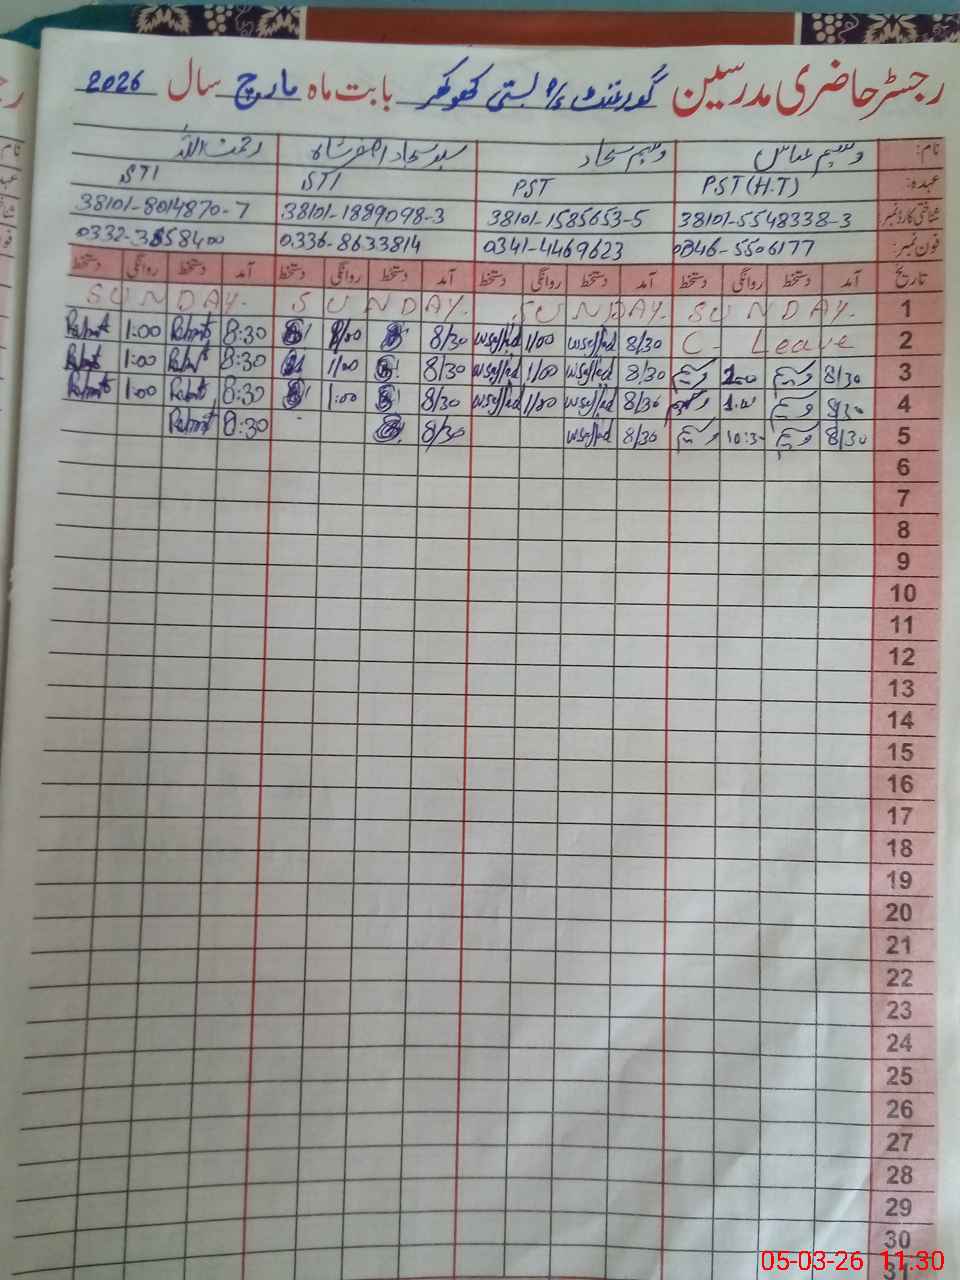 رجسٹر حاضری مدرسین گورنمنٹ P/S بستی کھوکھر بابت ماہ مارچ سال 2026
نام: وسیم عباس وسیم سجاد سید سجاد اصغر شاہ رحمت اللہ
عہدہ: PST (H.T) PST STI STI
شناختی کارڈ نمبر 38101-5548338-3 38101-1585653-5 38101-1889098-3 38101-8014870-7
فون نمبر: 0346-5506177 0341-4469623 0336-8633814
تاریخ آمد دستخط روانگی دستخط آمد دستخط روانگی دستخط آمد دستخط روانگی دستخط آمد دستخط روانگی دستخط
1 SUNDAY. SUNDAY. SUNDAY. SUNDAY.
2 C- Leave 8/30 1/00 8/30 8:30 1:00
3 8/30 8/30 1/00 8/30 1/00 8:30 1:00
4 8/30 8/30 1/00 8/30 1:00 8:30 1:00
5 8/30 10:30 8/30 8/30 8:30
6
7
8
9
10
11
12
13
14
15
16
17
18
19
20
21
22
23
24
25
26
27
28
29
30
31
05-03-26 11:30